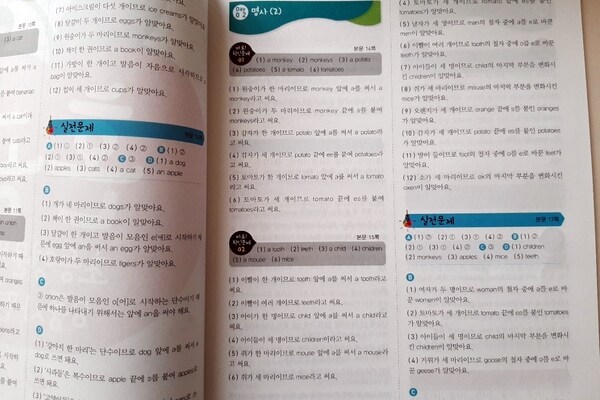 본문 10쪽
(3) a cat
본문 11쪽
(7) 아이스크림이 다섯 개이므로 ice creams가 알맞아요.
(8) 달걀이 두 개이므로 eggs가 알맞아요.
(9) 원숭이가 두 마리이므로 monkeys가 알맞아요.
(10) 책이 한 권이므로 a book이 알맞아요.
bag이 알맞아요.
(12) 컵이 세 개이므로 cups가 알맞아요.
실전문제
A (1) ① (2) ① (3) ② (4) ② B (1) ②
(2) ① (3) ① (4) ② C ③ D (1) a dog
(2) apples (3) cats (4) a cat (5) an apple
B
(1) 개가 네 마리이므로 dogs가 알맞아요.
(2) 책이 한 권이므로 a book이 알맞아요.
(3) 달걀이 한 개이고 발음이 모음인 e[에]로 시작하기 때
문에 egg 앞에 an을 써서 an egg가 알맞아요.
(4) 호랑이가 두 마리이므로 tigers가 알맞아요.
C
③ onion은 발음이 모음인 o[어]로 시작하는 단수이기 때
문에 하나를 나타내기 위해서는 앞에 an을 써야 해요.
D
(1) '강아지 한 마리'는 단수이므로 dog 앞에 a를 써서 a
dog로 쓰면 돼요.
(2) '사과들'은 복수이므로 apple 끝에 s를 붙여 apples로
쓰면 돼요.
Day 02 명사 (2)
바로! 확인문제 01
본문 14쪽
(1) a monkey (2) monkeys (3) a potato
(4) potatoes (5) a tomato (6) tomatoes
(1) 원숭이가 한 마리이므로 monkey 앞에 a를 써서 a
monkey라고 써요.
(2) 원숭이가 두 마리이므로 monkey 끝에 s를 붙여
monkeys라고 써요.
(3) 감자가 한 개이므로 potato 앞에 a를 써서 a potato라
고 써요.
(4) 감자가 세 개이므로 potato 끝에 es를 붙여 potatoes라
고 써요.
(5) 토마토가 한 개이므로 tomato 앞에 a를 써서 a tomato
라고 써요.
(6) 토마토가 세 개이므로 tomato 끝에 es를 붙여
tomatoes라고 써요.
바로! 확인문제 02
본문 15쪽
(1) a tooth (2) teeth (3) a child (4) children
(5) a mouse (6) mice
(1) 이빨이 한 개이므로 tooth 앞에 a를 써서 a tooth라고
써요.
(2) 이빨이 여러 개이므로 teeth라고 써요.
(3) 아이가 한 명이므로 child 앞에 a를 써서 a child라고
써요.
(4) 아이들이 세 명이므로 children이라고 써요.
(5) 쥐가 한 마리이므로 mouse 앞에 a를 써서 a mouse라
고 써요.
(6) 쥐가 세 마리이므로 mice라고 써요.
(4) 토마토가 세 개이므로 tomato 끝에 es를 붙인
tomatoes가 알맞아요.
(5) 남자가 세 명이므로 man의 철자 중에 a를 e로 바꾼
men이 알맞아요.
(6) 이빨이 여러 개이므로 tooth의 철자 중에 o를 e로 바꾼
teeth가 알맞아요.
(7) 아이들이 세 명이므로 child의 마지막 부분을 변화시
킨 children이 알맞아요.
(8) 쥐가 세 마리이므로 mouse의 마지막 부분을 변화시킨
mice가 알맞아요.
(9) 오렌지가 세 개이므로 orange 끝에 s를 붙인 oranges
가 알맞아요.
(10) 감자가 세 개이므로 potato 끝에 es를 붙인 potatoes
가 알맞아요.
(11) 발이 둘이므로 foot의 철자 중에 o를 e로 바꾼 feet가
알맞아요.
(12) 소가 세 마리이므로 ox의 마지막 부분을 변화시킨
oxen이 알맞아요.
실전문제
A (1) ② (2) ① (3) ② (4) ② B (1) ②
(2) ① (3) ① (4) ② C ③ D (1) children
(2) monkeys (3) apples (4) mice (5) teeth
B
(1) 여자가 두 명이므로 woman의 철자 중에 a를 e로 바
꾼 women이 알맞아요.
(2) 토마토가 세 개이므로 tomato 끝에 es를 붙인 tomatoes
가 알맞아요.
(3) 아이들이 세 명이므로 child의 마지막 부분을 변화시
킨 children이 알맞아요.
(4) 거위가 세 마리이므로 goose의 철자 중에 o를 e로 바
꾼 geese가 알맞아요.
C